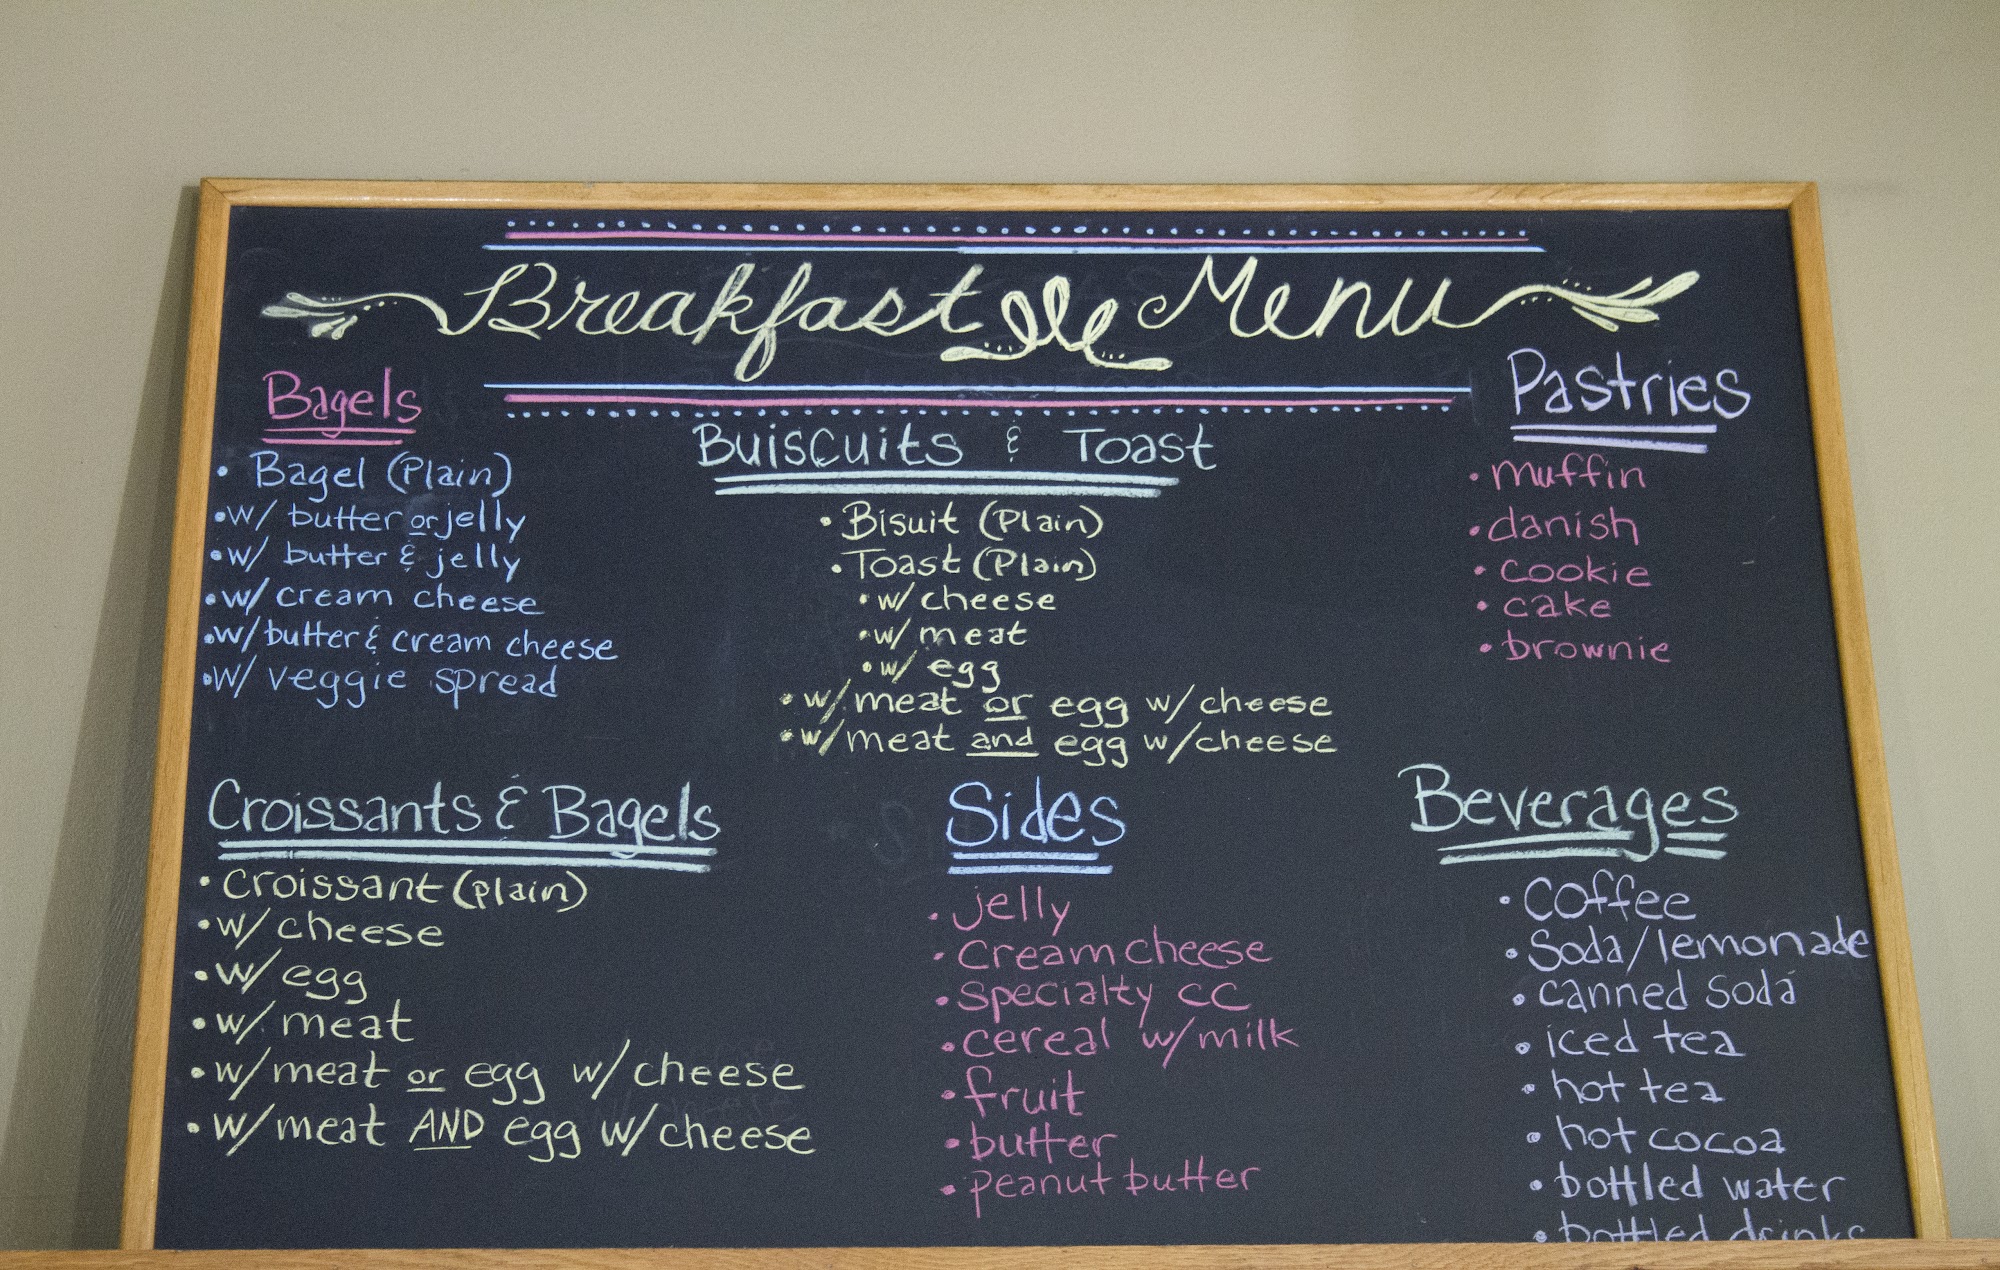 Breakfast Menu
Bagels
• Bagel (Plain)
• w/ butter or jelly
• w/ butter & jelly
• w/ cream cheese
• w/ butter & cream cheese
• w/ veggie spread
Buiscuits & Toast
• Bisuit (Plain)
• Toast (Plain)
• w/ cheese
• w/ meat
• w/ egg
• w/ meat or egg w/ cheese
• w/ meat and egg w/ cheese
Pastries
• muffin
• danish
• cookie
• cake
• brownie
Croissants & Bagels
• Croissant (plain)
• w/ cheese
• w/ egg
• w/ meat
• w/ meat or egg w/ cheese
• w/ meat AND egg w/ cheese
Sides
• jelly
• cream cheese
• specialty CC
• cereal w/ milk
• fruit
• butter
• peanut butter
Beverages
• coffee
• Soda/lemonade
• canned soda
• iced tea
• hot tea
• hot cocoa
• bottled water
• bottled drinks